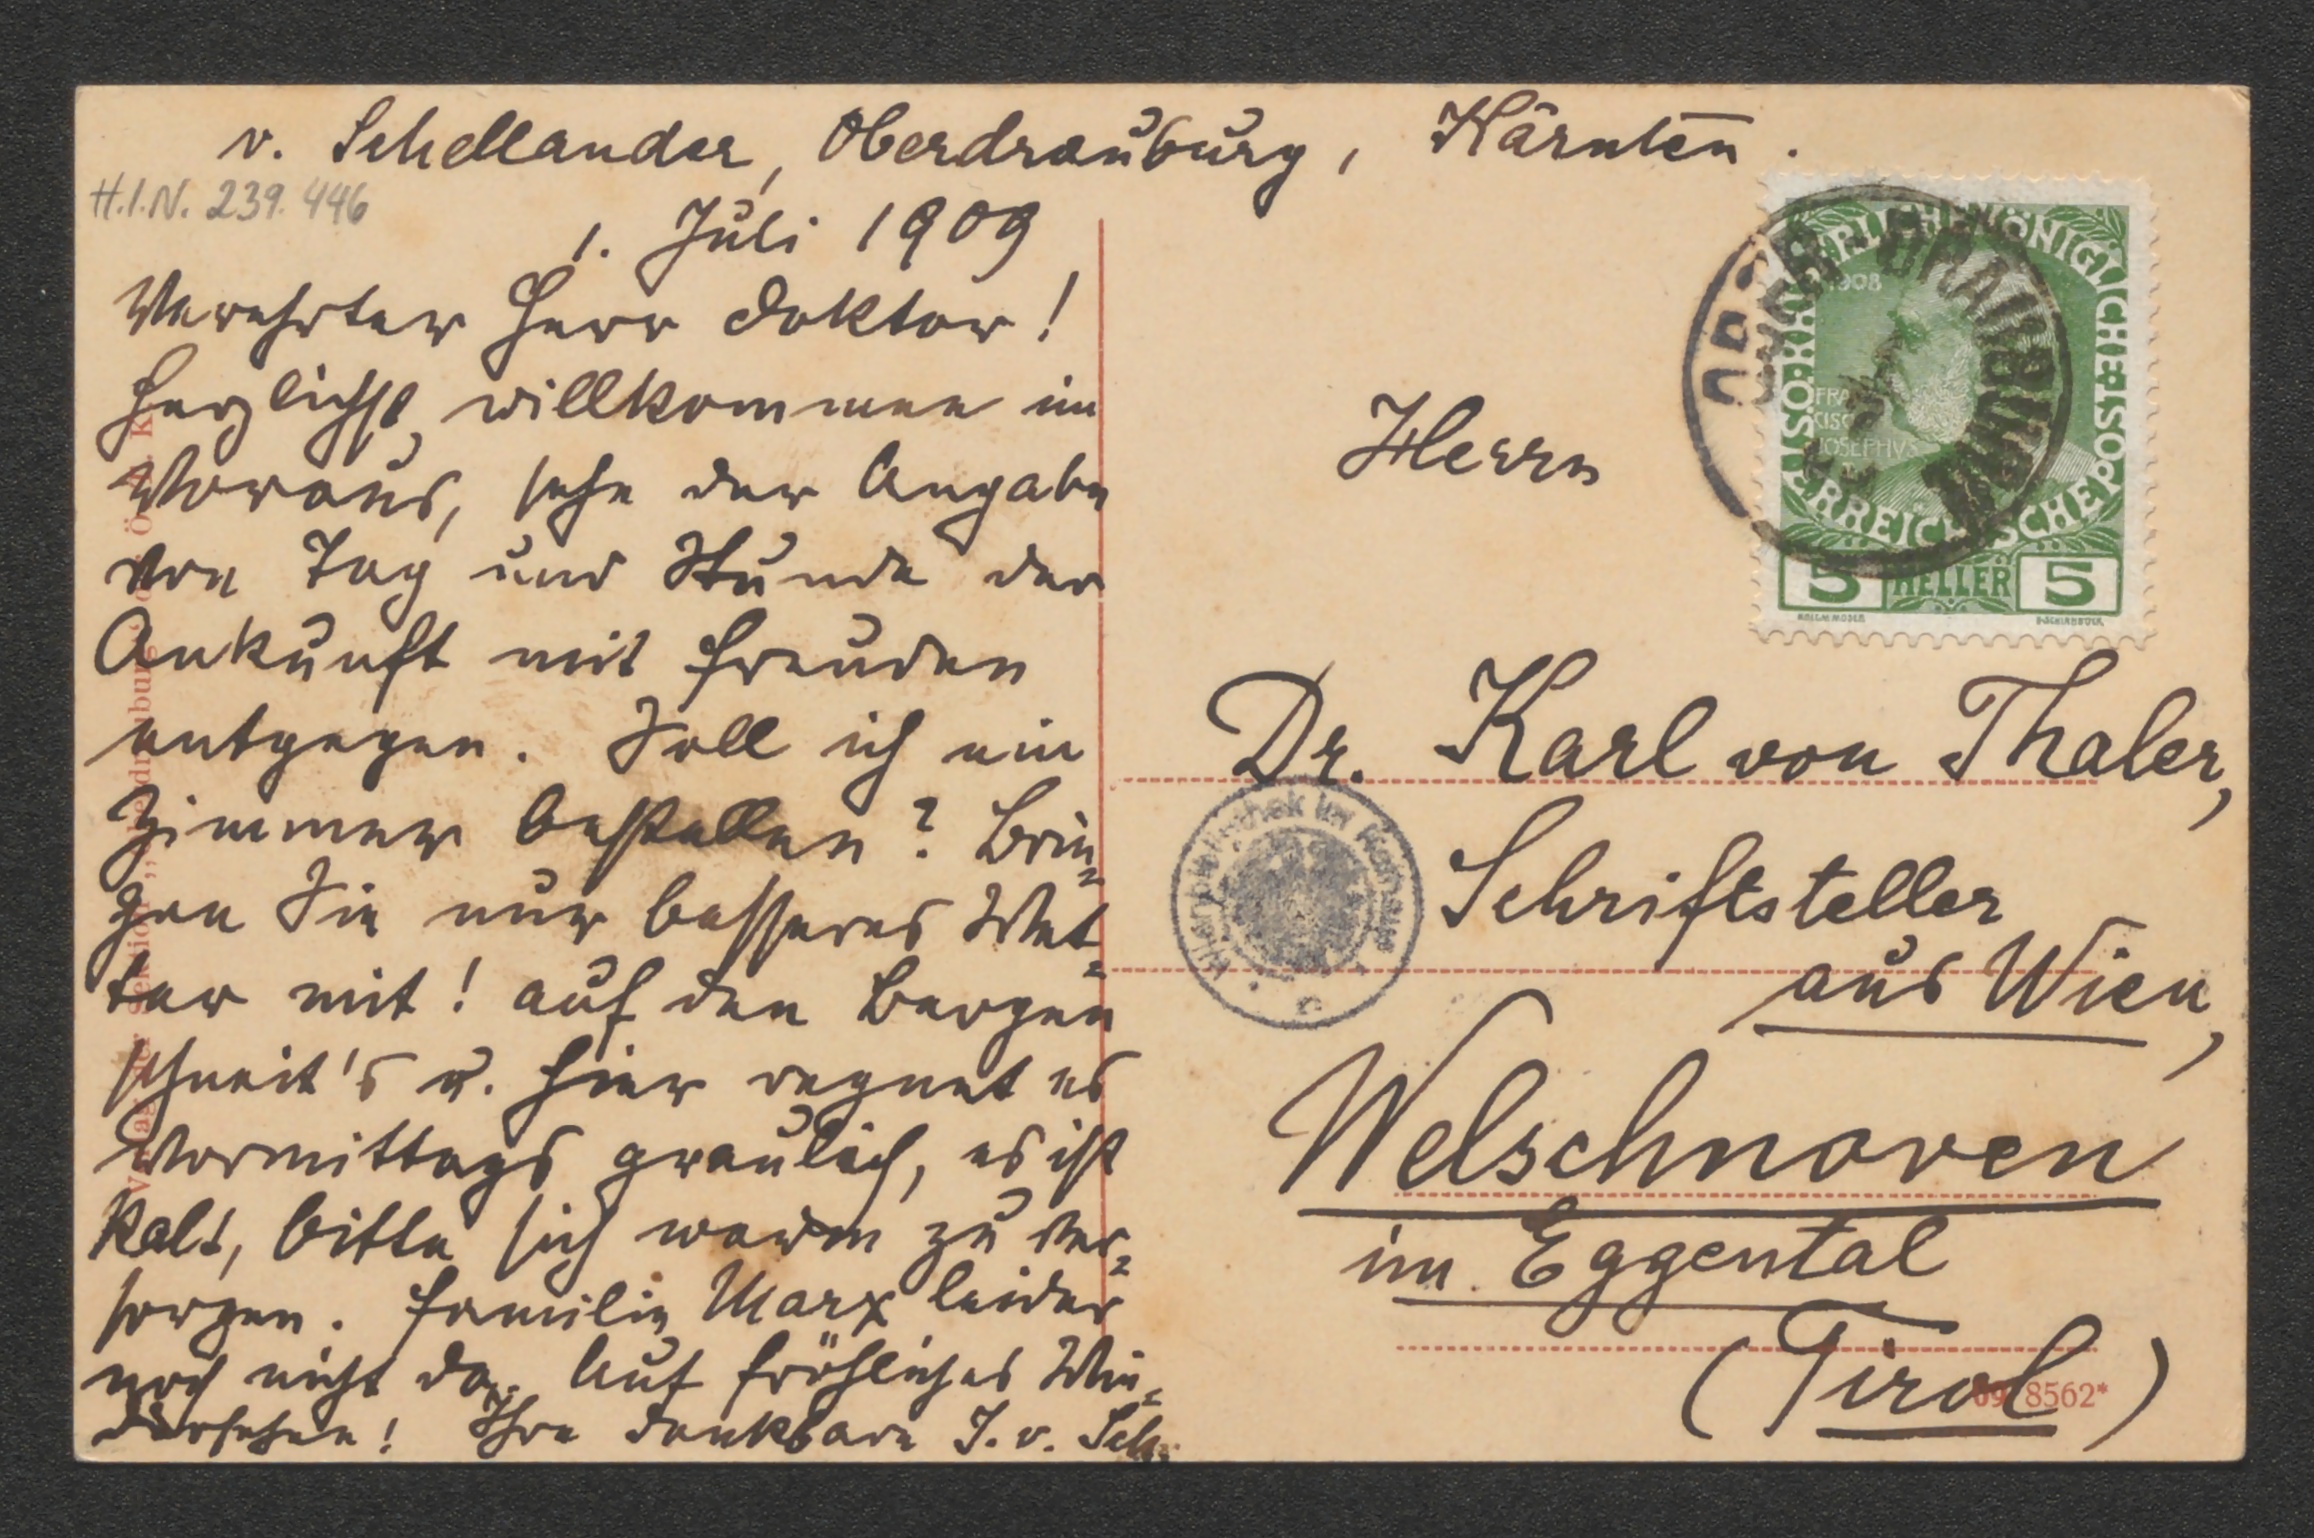 v. Schellander, Oberdrauburg, Kärnten.
H.I.N. 239.446
1. Juli 1909
Verehrter Herr Doktor!
Herzlichst willkommen im
Voraus, sehe der Angabe
von Tag und Stunde der
Ankunft mit Freuden
entgegen. Soll ich ein
Zimmer bestellen? Brin-
gen Sie nur besseres Wet-
ter mit! auf den Bergen
schneit's u. hier regnet es
Vormittags greulich, es ist
kalt, bitte sich warm zu ver-
sorgen. Familie Marx leider
noch nicht da. Auf fröhliches Wie-
dersehen! Ihre dankbare J. v. Sch.
Herrn
Dr. Karl von Thaler,
Schriftsteller
aus Wien,
Welschnoven
im Eggental
(Tirol)
8562*
KAISERLICHE KÖNIGLICHE ÖSTERREICHISCHE POST
1908
FRANCISCVS JOSEPHVS
5 HELLER 5
OBER-DRAUBURG